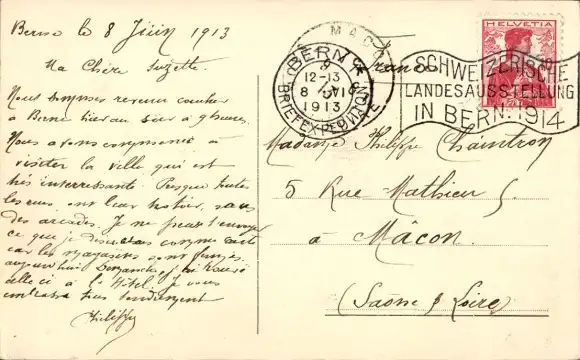 Berne le 8 Juin 1913
Ma Chère Suzette.
Nous sommes revenu coucher
à Berne hier au soir à 9 heures.
Nous avons commencé à
visiter la ville qui est
très interressante. Presque toutes
les rues ont leur trottoir sous
des arcades. Je ne peux t'envoyer
ce que je désirerais comme carte
car les magasins sont fermés
aujourd'hui Dimanche, j'ai trouvé
celle ci à l'Hôtel. Je vous
embrasse tous tendrement
Philippe
HELVETIA
10
MACO
BERN
9
12-13
8 VI
1913
BRIEFEXPEDITION
France
SCHWEIZERISCHE
LANDESAUSSTELLUNG
IN BERN. 1914
Madame Philippe Chaintron
5 Rue Mathieu
à Mâcon.
(Saône & Loire)